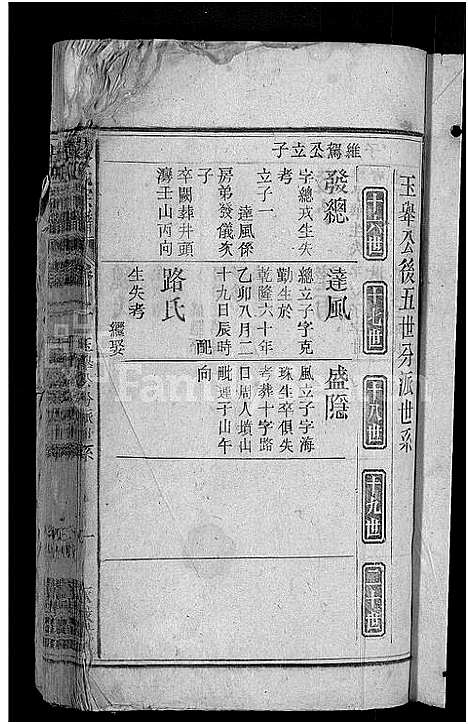 玉舉公後五世分派世系
十六世
十七世
十八世
十九世
二十世
維駕公立子
發總
字總戎生失
考
立子一
達風係
房弟發儀次
子
卒闕葬井頭
灣壬山丙向
達風
總立子字克
勤生於
乾隆六十年
乙卯八月二
十九日辰時
配
路氏
繼娶
生失考
盛隱
風立子字海
珠生卒俱失
考葬十字路
口周人墳山
毗連子山午
向